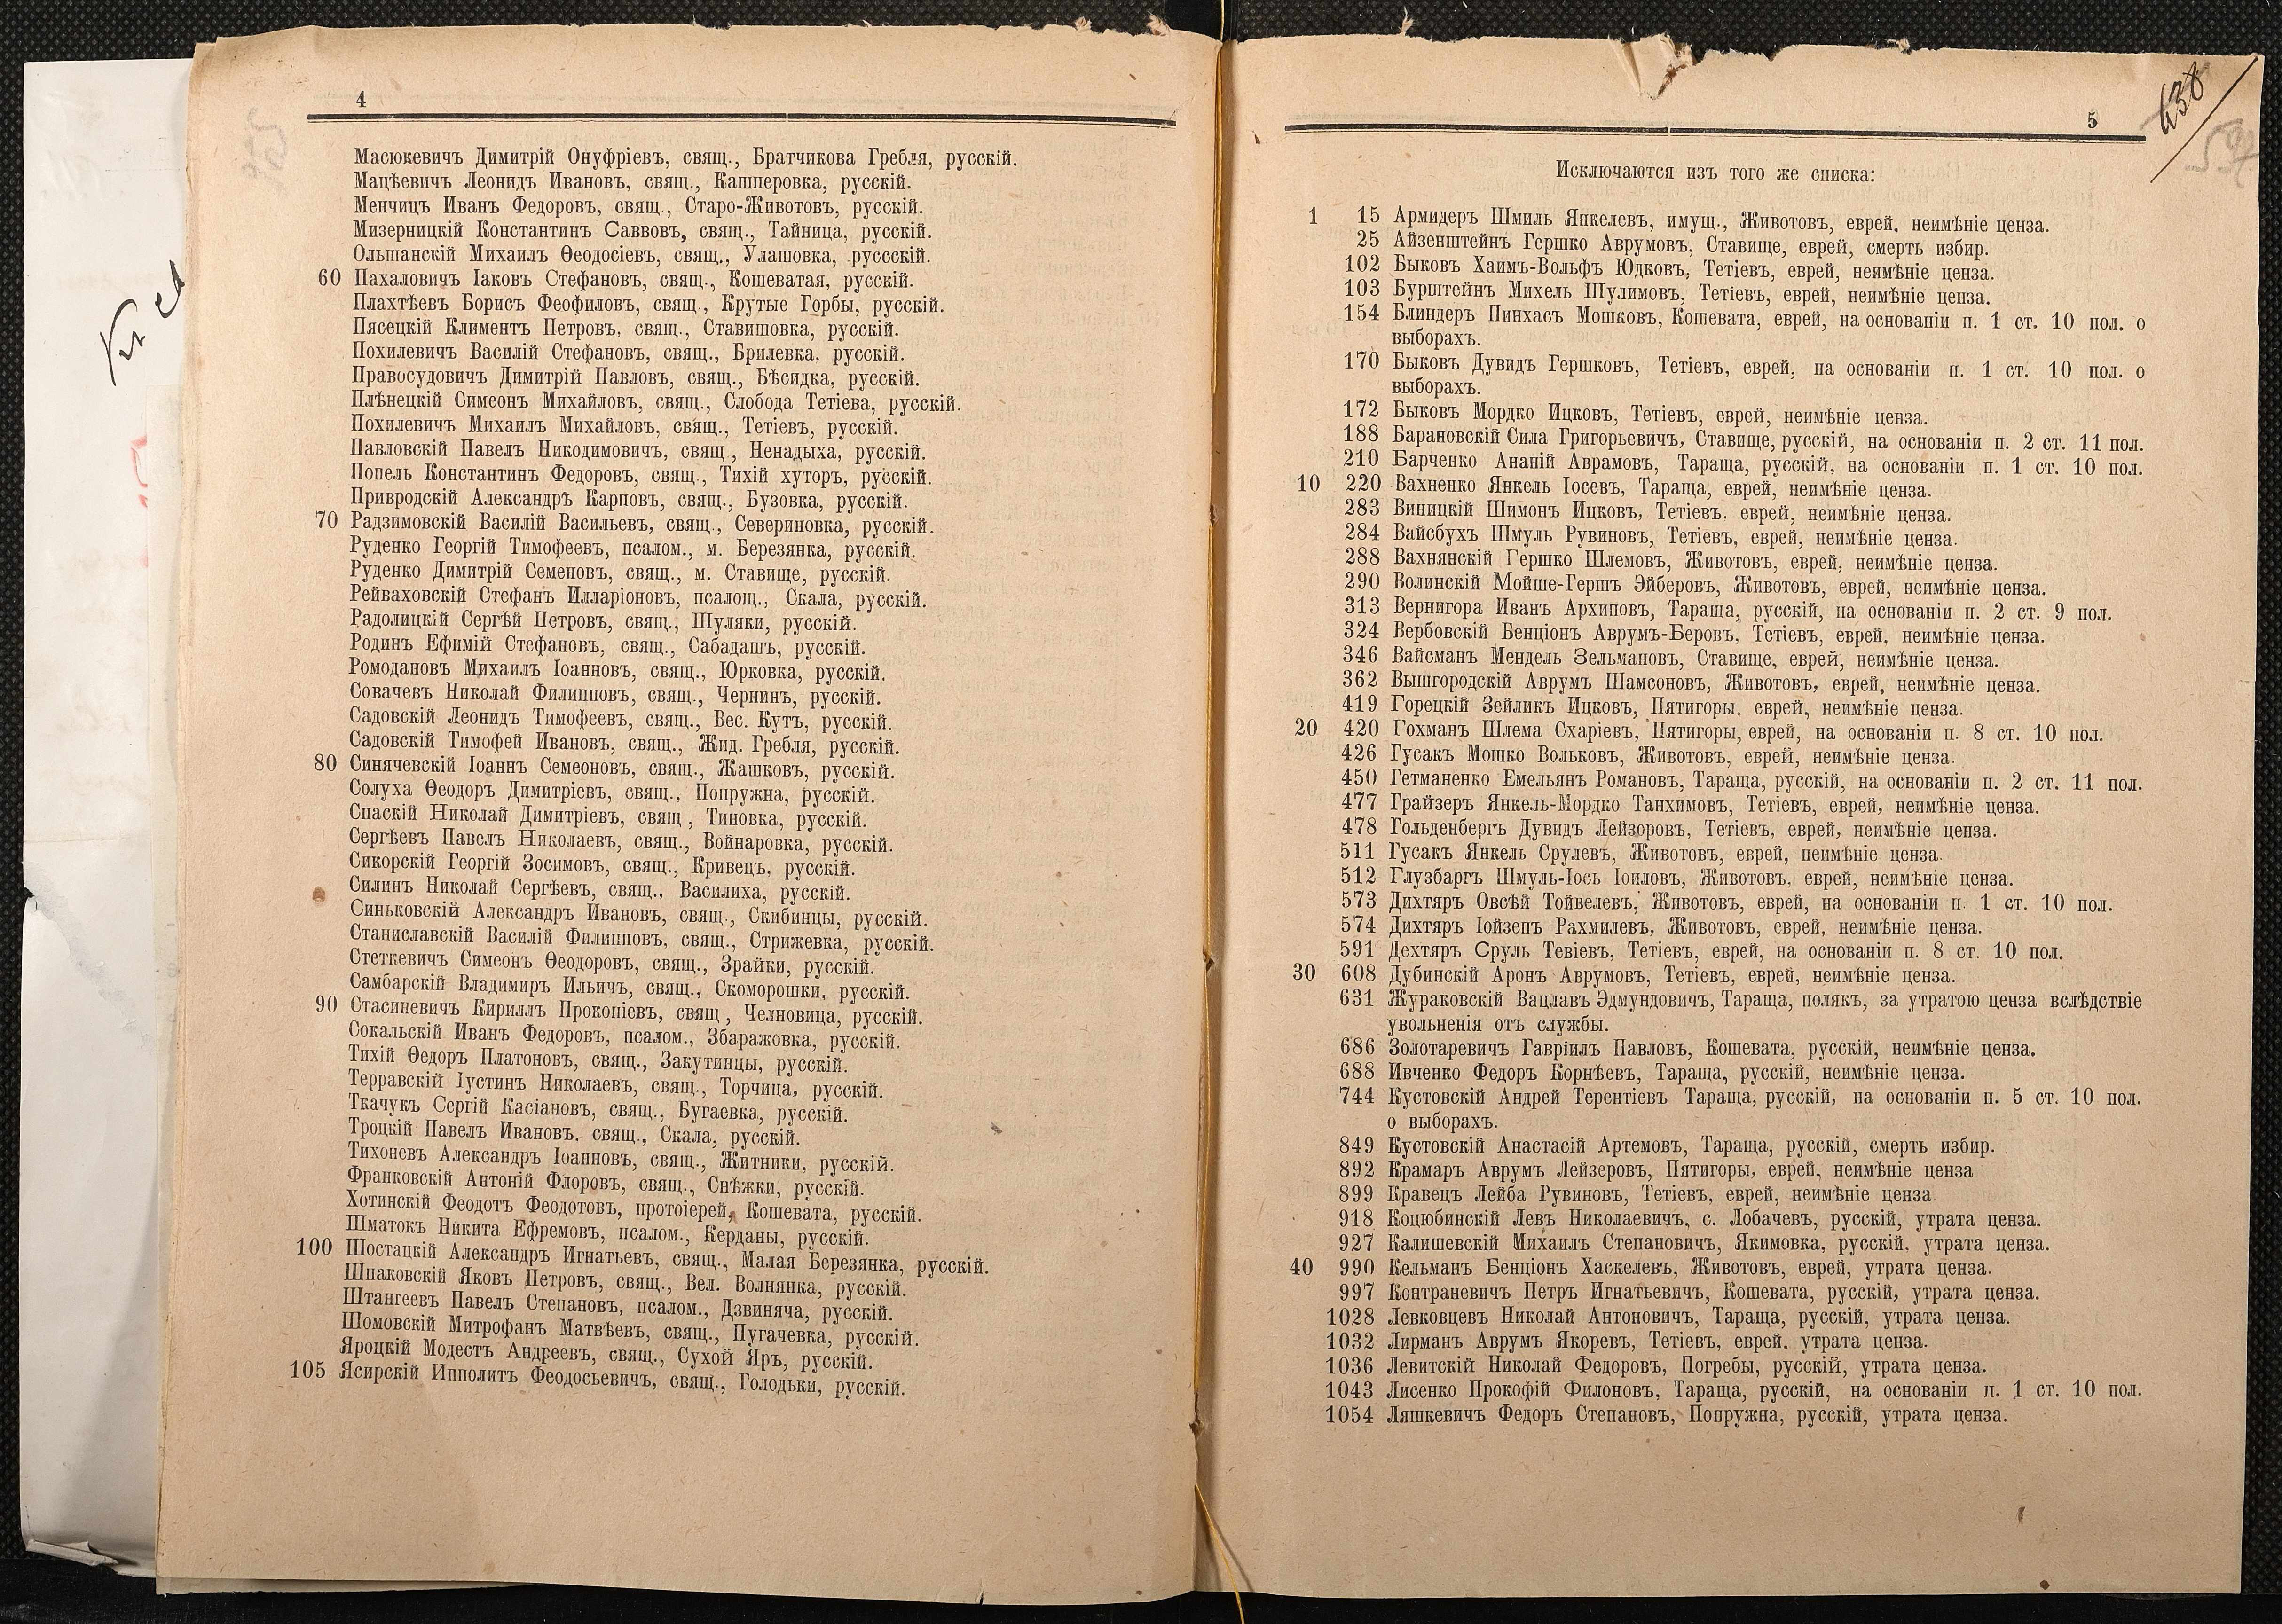 4
Масюкевичъ Димитрій Онуфріевъ, свящ., Братчикова Гребля, русскій.
Мацѣевичъ Леонидъ Ивановъ, свящ., Кашперовка, русскій.
Менчицъ Иванъ Федоровъ, свящ., Старо-Животовъ, русскій.
Мизерницкій Константинъ Саввовъ, свящ., Тайница, русскій.
Ольшанскій Михаилъ Ѳеодосіевъ, свящ., Улашовка, руссскій.
60 Пахаловичъ Іаковъ Стефановъ, свящ., Кошеватая, русскій.
Плахтѣевъ Борисъ Феофиловъ, свящ., Крутые Горбы, русскій.
Пясецкій Климентъ Петровъ, свящ., Ставишовка, русскій.
Похилевичъ Василій Стефановъ, свящ., Брилевка, русскій.
Правосудовичъ Димитрій Павловъ, свящ., Бѣсидка, русскій.
Плѣнецкій Симеонъ Михайловъ, свящ., Слобода Тетіева, русскій.
Похилевичъ Михаилъ Михайловъ, свящ., Тетіевъ, русскій.
Павловскій Павелъ Никодимовичъ, свящ., Ненадыха, русскій.
Попель Константинъ Федоровъ, свящ., Тихій хуторъ, русскій.
Привродскій Александръ Карповъ, свящ., Бузовка, русскій.
70 Радзимовскій Василій Васильевъ, свящ., Севериновка, русскій.
Руденко Георгій Тимофеевъ, псалом., м. Березянка, русскій.
Руденко Димитрій Семеновъ, свящ., м. Ставище, русскій.
Рейваховскій Стефанъ Илларіоновъ, псалощ., Скала, русскій.
Радолицкій Сергѣй Петровъ, свящ., Шуляки, русскій.
Родинъ Ефимій Стефановъ, свящ., Сабадашъ, русскій.
Ромодановъ Михаилъ Іоанновъ, свящ., Юрковка, русскій.
Совачевъ Николай Филипповъ, свящ., Чернинъ, русскій.
Садовскій Леонидъ Тимофеевъ, свящ., Вес. Кутъ, русскій.
Садовскій Тимофей Ивановъ, свящ., Жид. Гребля, русскій.
80 Синячевскій Іоаннъ Семеоновъ, свящ., Жашковъ, русскій.
Солуха Ѳеодоръ Димитріевъ, свящ., Попружна, русскій.
Спаскій Николай Димитріевъ, свящ , Тиновка, русскій.
Сергѣевъ Павелъ Николаевъ, свящ., Войнаровка, русскій.
Сикорскій Георгій Зосимовъ, свящ., Кривецъ, русскій.
Силинъ Николай Сергѣевъ, свящ., Василиха, русскій.
Синьковскій Александръ Ивановъ, свящ., Скибинцы, русскій.
Станиславскій Василій Филипповъ, свящ., Стрижевка, русскій.
Стеткевичъ Симеонъ Ѳеодоровъ, свящ., Зрайки, русскій.
Самбарскій Владимиръ Ильичъ, свящ., Скоморошки, русскій.
90 Стасиневичъ Кириллъ Прокопіевъ, свящ , Челновица, русскій.
Сокальскій Иванъ Федоровъ, псалом., Збаражовка, русскій.
Тихій Ѳедоръ Платоновъ, свящ., Закутинцы, русскій.
Терравскій Іустинъ Николаевъ, свящ., Торчица, русскій.
Ткачукъ Сергій Касіановъ, свящ., Бугаевка, русскій.
Троцкій Павелъ Ивановъ. свящ., Скала, русскій.
Тихоневъ Александръ Іоанновъ, свящ., Житники, русскій.
Франковскій Антоній Флоровъ, свящ., Снѣжки, русскій.
Хотинскій Феодотъ Феодотовъ, протоіерей, Кошевата, русскій.
Шматокъ Никита Ефремовъ, псалом., Керданы, русскій.
100 Шостацкій Александръ Игнатьевъ, свящ., Малая Березянка, русскій.
Шпаковскій Яковъ Петровъ, свящ., Вел. Волнянка, русскій.
Штангеевъ Павелъ Степановъ, псалом., Дзвиняча, русскій.
Шомовскій Митрофанъ Матвѣевъ, свящ., Пугачевка, русскій.
Яроцкій Модестъ Андреевъ, свящ., Сухой Яръ, русскій.
105 Ясирскій Ипполитъ Феодосьевичъ, свящ., Голодьки, русскій.
5
638
Исключаются изъ того же списка:
1 15 Армидеръ Шмиль Янкелевъ, имущ., Животовъ, еврей, неимѣніе ценза.
25 Айзенштейнъ Гершко Аврумовъ, Ставище, еврей, смерть избир.
102 Быковъ Хаимъ-Вольфъ Юдковъ, Тетіевъ, еврей, неимѣніе ценза.
103 Бурштейнъ Михель Шулимовъ, Тетіевъ, еврей, неимѣніе ценза.
154 Блиндеръ Пинхасъ Мошковъ, Кошевата, еврей, на основаніи п. 1 ст. 10 пол. о
выборахъ.
170 Быковъ Дувидъ Гершковъ, Тетіевъ, еврей, на основаніи п. 1 ст. 10 пол. о
выборахъ.
172 Быковъ Мордко Ицковъ, Тетіевъ, еврей, неимѣніе ценза.
188 Барановскій Сила Григорьевичъ, Ставище, русскій, на основаніи п. 2 ст. 11 пол.
210 Барченко Ананій Аврамовъ, Тараща, русскій, на основаніи п. 1 ст. 10 пол.
10 220 Вахненко Янкель Іосевъ, Тараща, еврей, неимѣніе ценза.
283 Виницкій Шимонъ Ицковъ, Тетіевъ. еврей, неимѣніе ценза.
284 Вайсбухъ Шмуль Рувиновъ, Тетіевъ, еврей, неимѣніе ценза.
288 Вахнянскій Гершко Шлемовъ, Животовъ, еврей, неимѣніе ценза.
290 Волинскій Мойше-Гершъ Эйберовъ, Животовъ, еврей, неимѣніе ценза.
313 Вернигора Иванъ Архиповъ, Тараща, русскій, на основаніи п. 2 ст. 9 пол.
324 Вербовскій Бенціонъ Аврумъ-Беровъ, Тетіевъ, еврей, неимѣніе ценза.
346 Вайсманъ Мендель Зельмановъ, Ставище, еврей, неимѣніе ценза.
362 Вышгородскій Аврумъ Шамсоновъ, Животовъ, еврей, неимѣніе ценза.
419 Горецкій Зейликъ Ицковъ, Пятигоры. еврей, неимѣніе ценза.
20 420 Гохманъ Шлема Схаріевъ, Пятигоры, еврей, на основаніи п. 8 ст. 10 пол.
426 Гусакъ Мошко Вольковъ, Животовъ, еврей, неимѣніе ценза.
450 Гетманенко Емельянъ Романовъ, Тараща, русскій, на основаніи п. 2 ст. 11 пол.
477 Грайзеръ Янкель-Мордко Танхимовъ, Тетіевъ, еврей, неимѣніе ценза.
478 Гольденбергъ Дувидъ Лейзоровъ, Тетіевъ, еврей, неимѣніе ценза.
511 Гусакъ Янкель Срулевъ, Животовъ, еврей, неимѣніе ценза.
512 Глузбаргъ Шмуль-Іось Іоиловъ, Животовъ, еврей, неимѣніе ценза.
573 Дихтяръ Овсѣй Тойвелевъ, Животовъ, еврей, на основаніи п. 1 ст. 10 пол.
574 Дихтяръ Іойзепъ Рахмилевъ, Животовъ, еврей, неимѣніе ценза.
591 Дехтяръ Сруль Тевіевъ, Тетіевъ, еврей, на основаніи п. 8 ст. 10 пол.
30 608 Дубинскій Аронъ Аврумовъ, Тетіевъ, еврей, неимѣніе ценза.
631 Жураковскій Вацлавъ Эдмундовичъ, Тараща, полякъ, за утратою ценза вслѣдствіе
увольненія отъ службы.
686 Золотаревичъ Гавріилъ Павловъ, Кошевата, русскій, неимѣніе ценза.
688 Ивченко Федоръ Корнѣевъ, Тараща, русскій, неимѣніе ценза.
744 Кустовскій Андрей Терентіевъ Тараща, русскій, на основаніи п. 5 ст. 10 пол.
о выборахъ.
849 Кустовскій Анастасій Артемовъ, Тараща, русскій, смерть избир.
892 Крамаръ Аврумъ Лейзеровъ, Пятигоры, еврей, неимѣніе ценза
899 Кравецъ Лейба Рувиновъ, Тетіевъ, еврей, неимѣніе ценза.
918 Коцюбинскій Левъ Николаевичъ, с. Лобачевъ, русскій, утрата ценза.
927 Калишевскій Михаилъ Степановичъ, Якимовка, русскій, утрата ценза.
40 990 Кельманъ Бенціонъ Хаскелевъ, Животовъ, еврей, утрата ценза.
997 Контраневичъ Петръ Игнатьевичъ, Кошевата, русскій, утрата ценза.
1028 Левковцевъ Николай Антоновичъ, Тараща, русскій, утрата ценза.
1032 Лирманъ Аврумъ Якоревъ, Тетіевъ, еврей, утрата ценза.
1036 Левитскій Николай Федоровъ, Погребы, русскій, утрата ценза.
1043 Лисенко Прокофій Филоновъ, Тараща, русскій, на основаніи п. 1 ст. 10 пол.
1054 Ляшкевичъ Федоръ Степановъ, Попружна, русскій, утрата ценза.